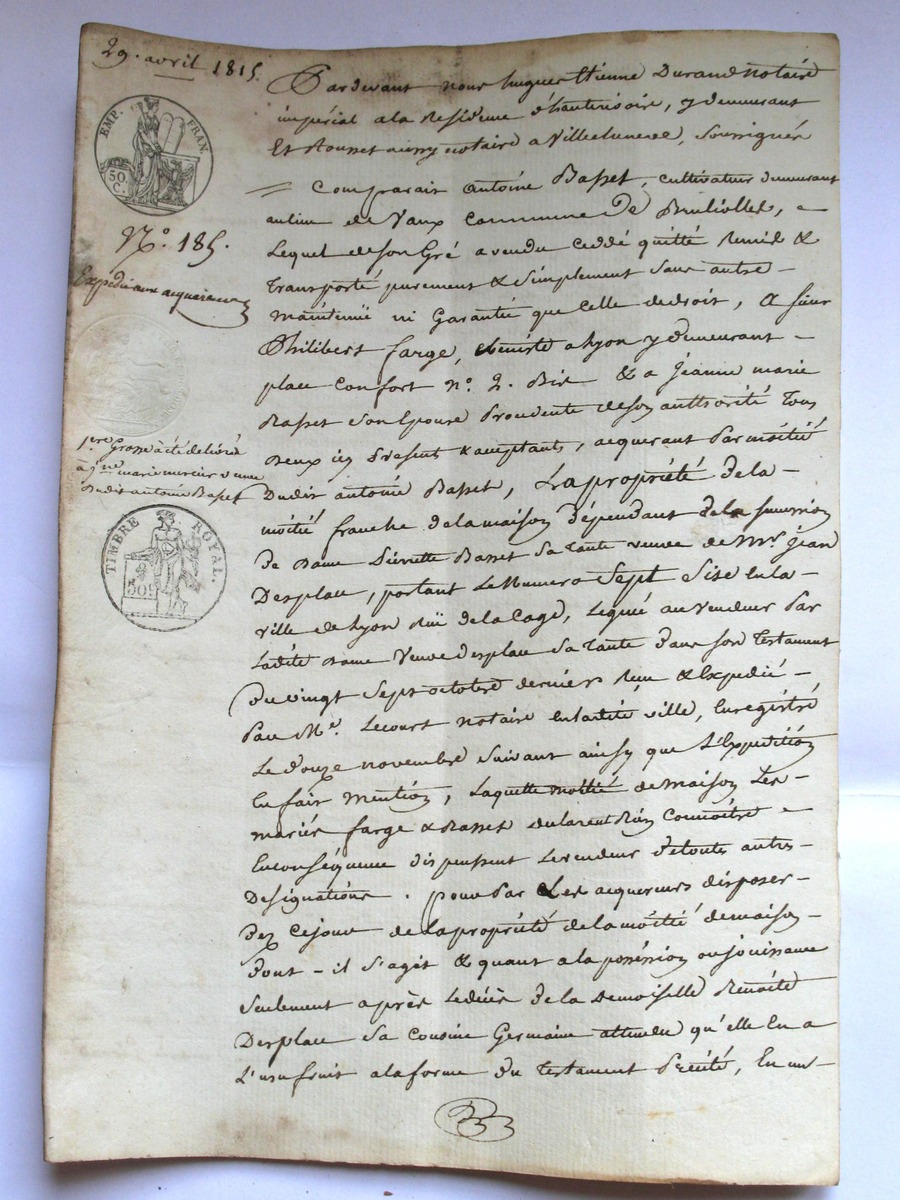 29. avril 1815.
EMP. FRAN.
50 C.
N.º 185.
Expédié aux acquereurs
1.ere Grosse a été delivré
a J.ne marie mercier veuve
Dudit antoine Basset
TIMBRE ROYAL.
50 C
Pardevant nous hugues Etienne Durand notaire
impérial a la Residence d'hauterivoire, y demeurant
Et Rousset aussy notaire a Villecheneve, soussignés
= Comparait antoine Basset, cultivateur demeurant
au lieu de Vaux Commune De Brulioles, =
Lequel de son Gré a vendu ceddé quitté Remis &
Transporté purement & simplement sans autre –
maintenüe ni Garantie que celle de droit, A sieur
Philibert farge, ebeniste a Lyon y demeurant –
place Confort nº. 2. Bis & a jeanne marie
Basset son Epouse Procedente de son authorité Tous
Deux icy Present & acceptants, acquerant Par moitié
Dudit antoine Basset, La propriété de la –
moitié franche de la maison dépendant de la succession
De Dame Pierrette Basset sa tante veuve de Mr. jean
Desplace, portant Le Numero Sept sise en la –
ville de Lyon Rüe de la Cage, Legué au Vendeur Par
Ladite Dame Veuve Desplace sa Tante dans son Testament
Du vingt Sept octobre dernier Recu & Expedié –
Par Me. Lecourt notaire en ladite ville, Enregistré
Le Douze novembre suivant ainsy que L'Expedition
En fait mention, Laquelle moitié de maison Les –
mariés farge & Basset declarent bien Connoitre =
En conséquence dispensent Le vendeur de toutes autres
Designations. pour Par Les acquereurs disposer –
Dez Ce jour de la propriété de la moitié de maison –
Dont – il s'agit & quant a la possession ou jouissance
seulement après Le décès de la Demoiselle Benoite
Desplace sa cousine Germaine attendu qu'elle En a
L'usufruit a la forme du Testament Précité, En un –